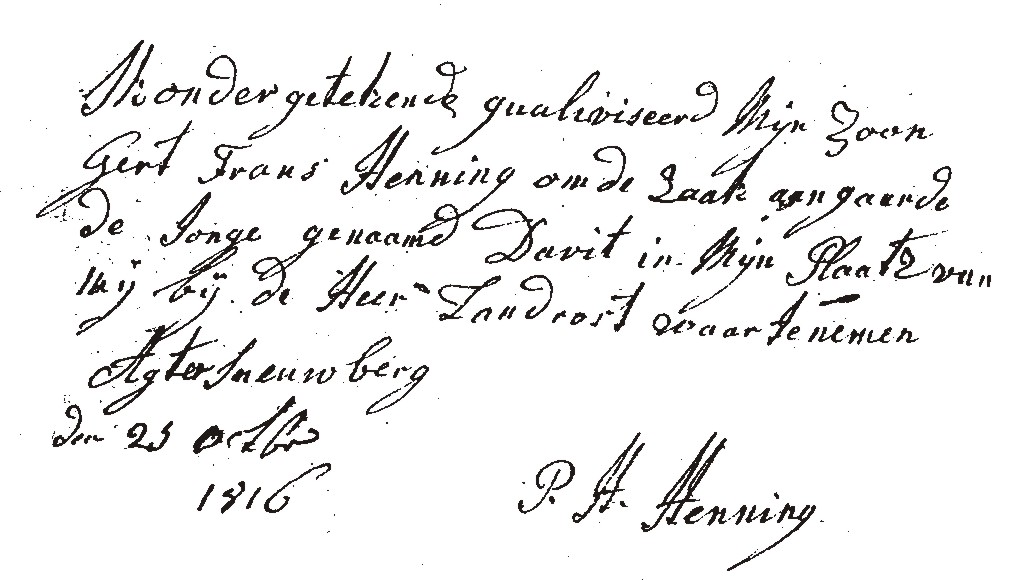 Ik ondergetekende qualiviseerd Mijn Zoon
Gert Frans Henning om de Zaak aangaande
de Jonge genaamd Davit in Mijn Plaatz van
Mij bij de Heer Landrost waar te nemen
Agter Sneuwberg
den 23 octbr
1816
P. H. Henning